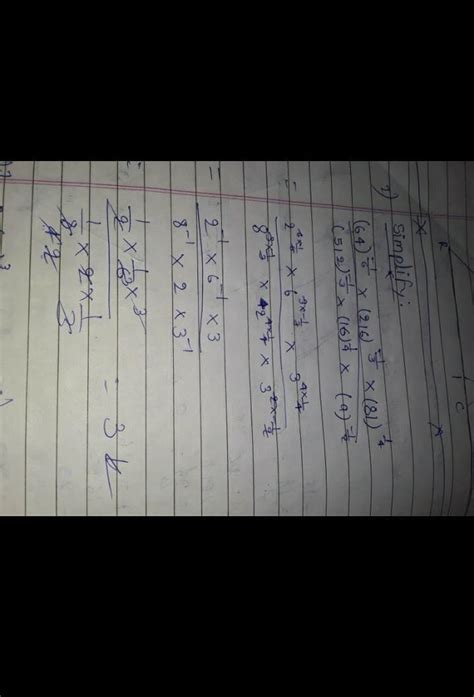 7) Simplify:
(64)^{-1/6} × (216)^{-1/3} × (81)^{1/4}
(512)^{-1/3} × (16)^{1/4} × (9)^{-1/2}
= 2^{6×-1/6} × 6^{3×-1/3} × 3^{4×1/4}
8^{3×-1/3} × 2^{4×1/4} × 3^{2×-1/2}
= 2^{-1} × 6^{-1} × 3
8^{-1} × 2 × 3^{-1}
1/2 × 1/6 × 3
1/8 × 2 × 1/3
= 3